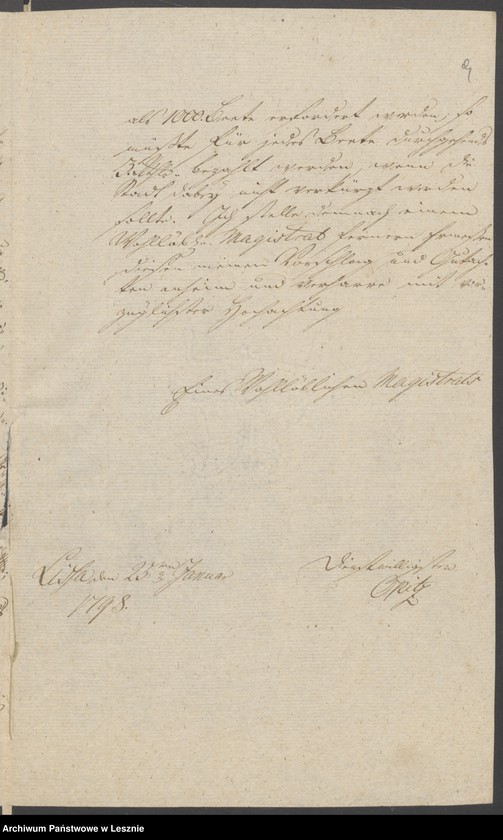 als 1000. Beete erfordert werden, so
müßte für jedes Beete durchgehends
3 Rthlr. bezahlt werden, wenn die
Stadt dabey nicht verkürzt werden
sollte. Ich stelle demnach einem
Wohllöbl. Magistrat fernern
diesen meinen Vorschlag und Gutach-
ten anheim und verharre mit vor-
züglichster Hochachtung
Eines Wohllöblichen Magistrats
Lissa, den 23ten Januar
1798.
Dienstwilligster
Opitz
Archiwum Państwowe w Lesznie